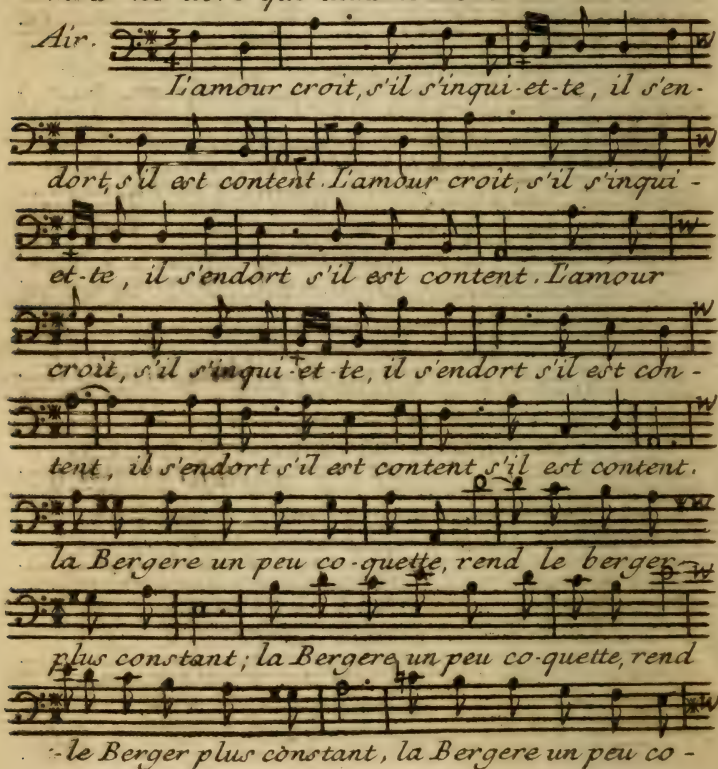 Air.
L'amour croit, s'il s'inqui-et-te, il s'en-
dort, s'il est content. L'amour croit, s'il s'inqui-
et-te, il s'endort s'il est content. L'amour
croit, s'il s'inqui-et-te, il s'endort s'il est con-
tent, il s'endort s'il est content s'il est content.
la Bergere un peu co-quette, rend le berger
plus constant; la Bergere un peu co-quette, rend
-le Berger plus constant, la Bergere un peu co-